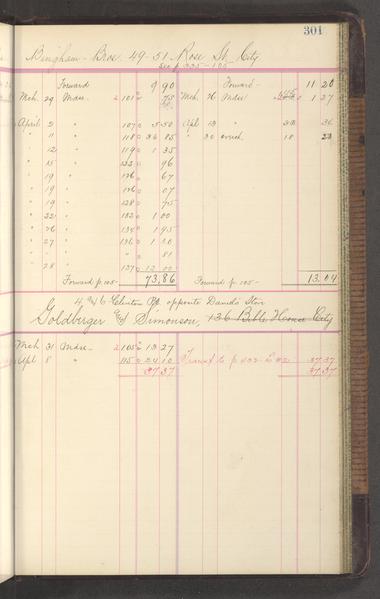 301
Bingham Bros. 49-51 Rose St. City
Forward 9 90 Forward 11 20
Mch. 29 Mdse. 2 101 75 Mch. 76 Mdse 1 27
April 2 " 107 5 50 Apl 13 " 36
" 11 " 118 36 85 " 30 " 10
" 12 " 119 1 35
" 15 " 96
" 19 " 126 67
" 19 " 126 07
" 19 " 128 75
" 22 " 132 1 00
" 26 " 134 1 95
" 27 " 136
" " " 81
" 28 " 137 12 00
Forward p. 105 73,86 Forward p. 105 13.04
Clinton opposite Daniel's Store
Goldberger & Simonson, 136 Bible House City
Mch 31 Mdse 2 105 13 27
Apl 8 " 115 24 10 Transf. to p. 37 37
37 37 37 37